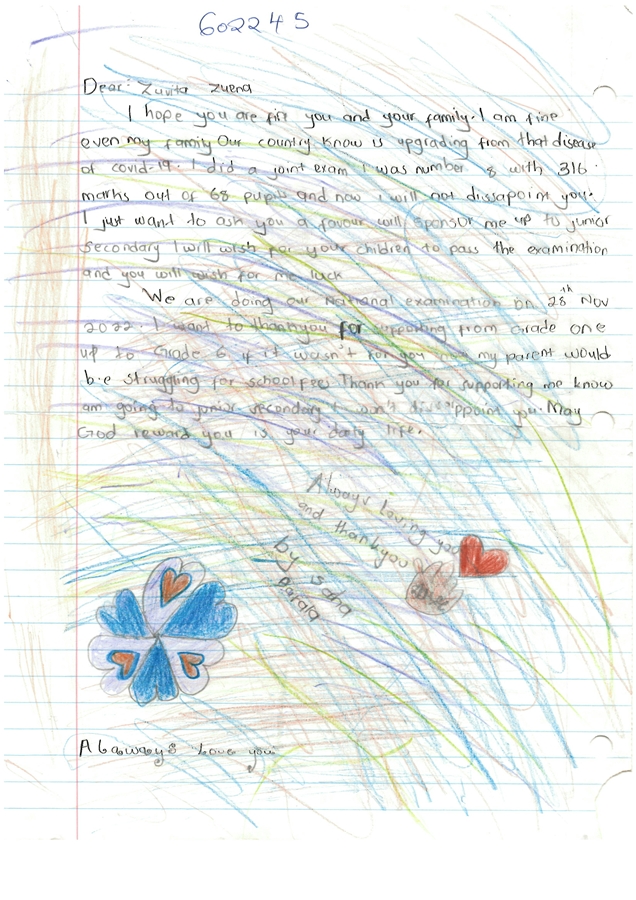 602245
Dear: Zuvita Zuena
I hope you are fin you and your family. I am fine
even my family Our country know is upgrading from that disease
of covid-19. I did a joint exam I was number 8 with 316
marks out of 68 pupils and now i will not dissapoint you.
I just want to ask you a favour will sponsor me up to junior
secondary I will wish for your children to pass the examination
and you will wish for me luck
We are doing our National examination on 28th Nov
2022. I want to thankyou for supporting from Grade one
up to Grade 6 if it wasn't for you my parent would
be struggling for school fees Thank you for supporting me know
am going to junior secondary I won't dissappoint you. May
God reward you is your daily life.
Always loving you
and thankyou
by
Love
Always love you